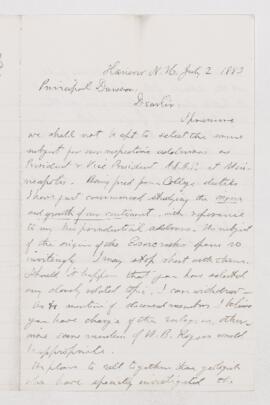 Hanover N.H. July 2 1883
Principal Dawson
Dear Sir
I presume
we shall not be apt to select the same
subject for our respective addresses as
President & Vice President A.A.A.S. at Minneapolis
Being freed from College duties
I have just commenced studying the origin
and growth of our continent, with reference
to my Vice presidential address. The subject
of the origin of the Eozoic rocks opens so
invitingly I may stop short with them.
Should it happen that you have selected
any closely related topic, I can withdraw
mention of deceased members I believe
you have charge of the eulogies, otherwise
some mention of W. B. Rogers would
be appropriate.
We plan to call together the geologists
who have specially investigated the